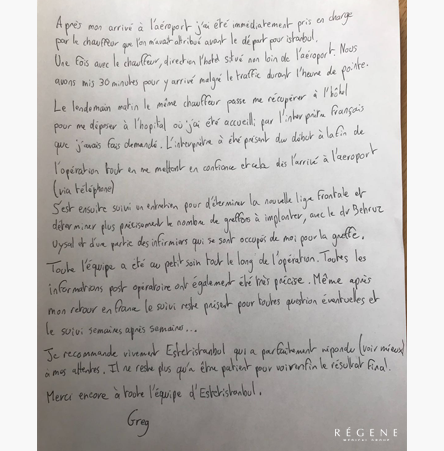 Après mon arrivé à l'aéroport j'ai été immédiatement pris en charge
par le chauffeur que l'on m'avait attribué avant le départ pour istanbul.
Une fois avec le chauffeur, direction l'hotel situé non loin de l'aéroport. Nous
avons mis 30 minutes pour y arrivé malgré le traffic durant l'heure de pointe.
Le lendemain matin le même chauffeur passe me récupérer à l'hôtel
pour me déposer à l'hopital où j'ai été accueilli par l'interprète français
que j'avais fais demandé. L'interprète a été présent du début à la fin de
l'opération tout en me mettant en confiance et cela dès l'arrivé à l'aeroport
(via téléphone)
S'est ensuite suivi un entretien pour déterminer la nouvelle ligne frontale et
déterminer plus précisement le nombre de greffons à implanter, avec le dr Behruz
Uysal et d'une partie des infirmiers qui se sont occupés de moi pour la greffe.
Toute l'équipe a été au petit soin tout le long de l'opération. Toutes les
informations post opératoire ont également été très précise. Même après
mon retour en france le suivi reste présent pour toutes question éventuelles et
le suivi semaines après semaine...
Je recommande vivement Esteticistanbul qui a parfaitement répondu (voir mieux)
à mes attentes. Il ne reste plus qu'a être patient pour voir enfin le résultat final.
Merci encore à toute l'équipe d'Esteticistanbul.
Greg
RÉGENE
MEDICAL GROUP